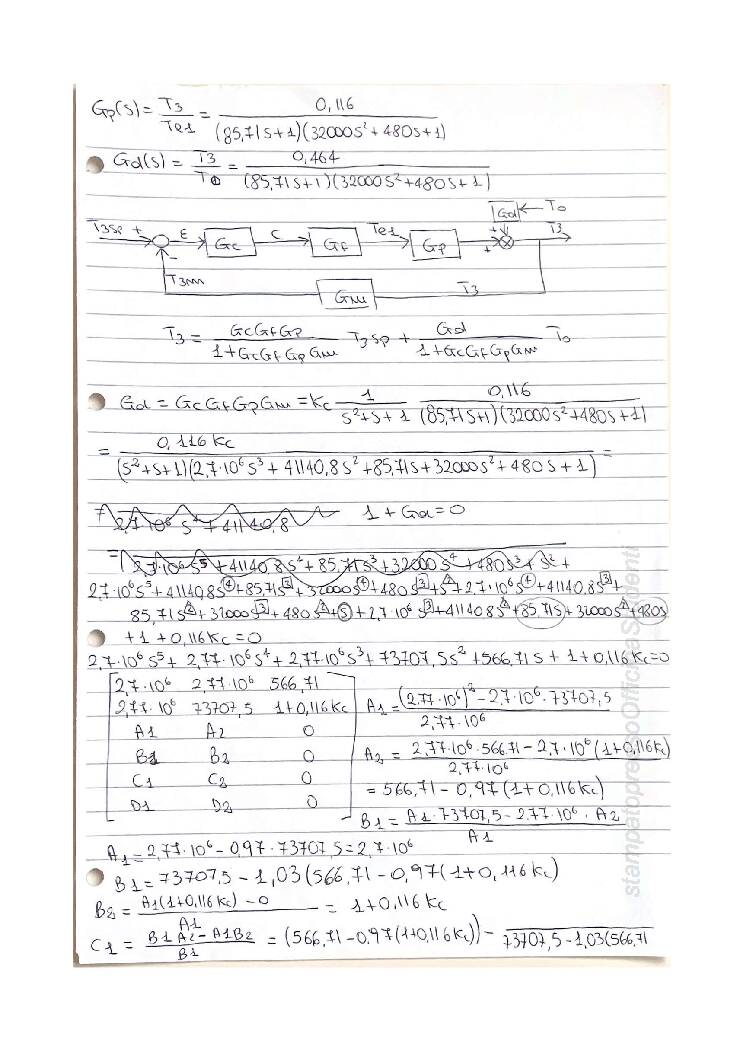 Gp(s) = T3/Te1 = 0,116 / (85,71s+1)(32000s²+480s+1)
Gd(s) = T3/T0 = 0,464 / (85,71s+1)(32000s²+480s+1)
Gd ← T0
T3sp + ε Gc C Gf Te1 Gp + + T3
-
T3m Gm T3
T3 = GcGfGp / 1+GcGfGpGm T3sp + Gd / 1+GcGfGpGm T0
Gol = GcGfGpGm = Kc 1 / s²+s+1 0,116 / (85,71s+1)(32000s²+480s+1)
= 0,116 Kc / (s²+s+1)(2,7·10⁶s³+41140,8s²+85,71s+32000s²+480s+1) =
2,7·10⁶ s⁴ + 41140,8 1+Gol=0
= 2,7·10⁶s⁵ + 41140,8s⁴ + 85,71s³ + 32000s⁴ + 480s³ + s² +
2,7·10⁶s⁵+41140,8s⁴+85,71s³+32000s⁴+480s³+s²+2,7·10⁶s⁴+41140,8s³+
85,71s²+32000s³+480s²+s+2,7·10⁶s³+41140,8s²+85,71s+32000s²+480s
+1+0,116Kc=0
2,7·10⁶s⁵+2,77·10⁶s⁴+2,77·10⁶s³+73707,5s²+566,71s+1+0,116Kc=0
2,7·10⁶ 2,77·10⁶ 566,71
2,77·10⁶ 73707,5 1+0,116Kc A1 = (2,77·10⁶)²-2,7·10⁶·73707,5 / 2,77·10⁶
A1 A2 0
B1 B2 0 A2 = 2,77·10⁶·566,71-2,7·10⁶(1+0,116Kc) / 2,77·10⁶
C1 C2 0 = 566,71-0,97(1+0,116Kc)
D1 D2 0 B1 = A1·73707,5-2,77·10⁶·A2 / A1
A1 = 2,77·10⁶-0,97·73707,5 = 2,7·10⁶
B1 = 73707,5-1,03(566,71-0,97(1+0,116Kc)
B2 = A1(1+0,116Kc)-0 / A1 = 1+0,116Kc
C1 = B1A2-A1B2 / B1 = (566,71-0,97(1+0,116Kc)) - / 73707,5-1,03(566,71
stampatopressoOfficinaStudenti